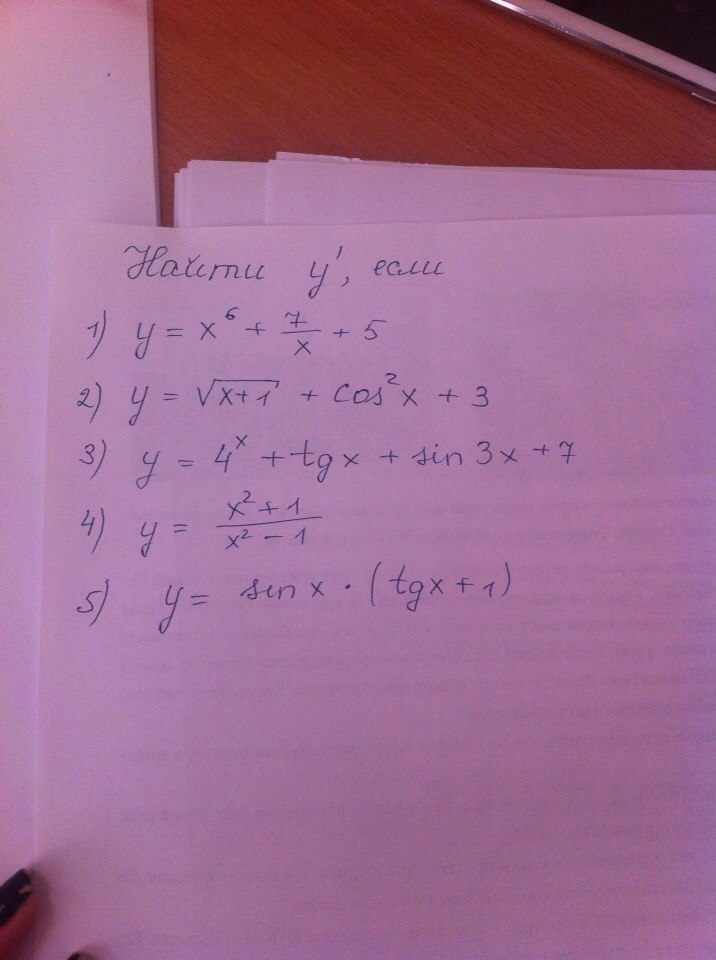 Найти y', если
1) y = x⁶ + 7/x + 5
2) y = √(x+1) + cos²x + 3
3) y = 4ˣ + tgx + sin 3x + 7
4) y = (x² + 1)/(x² − 1)
5) y = sin x · (tgx + 1)